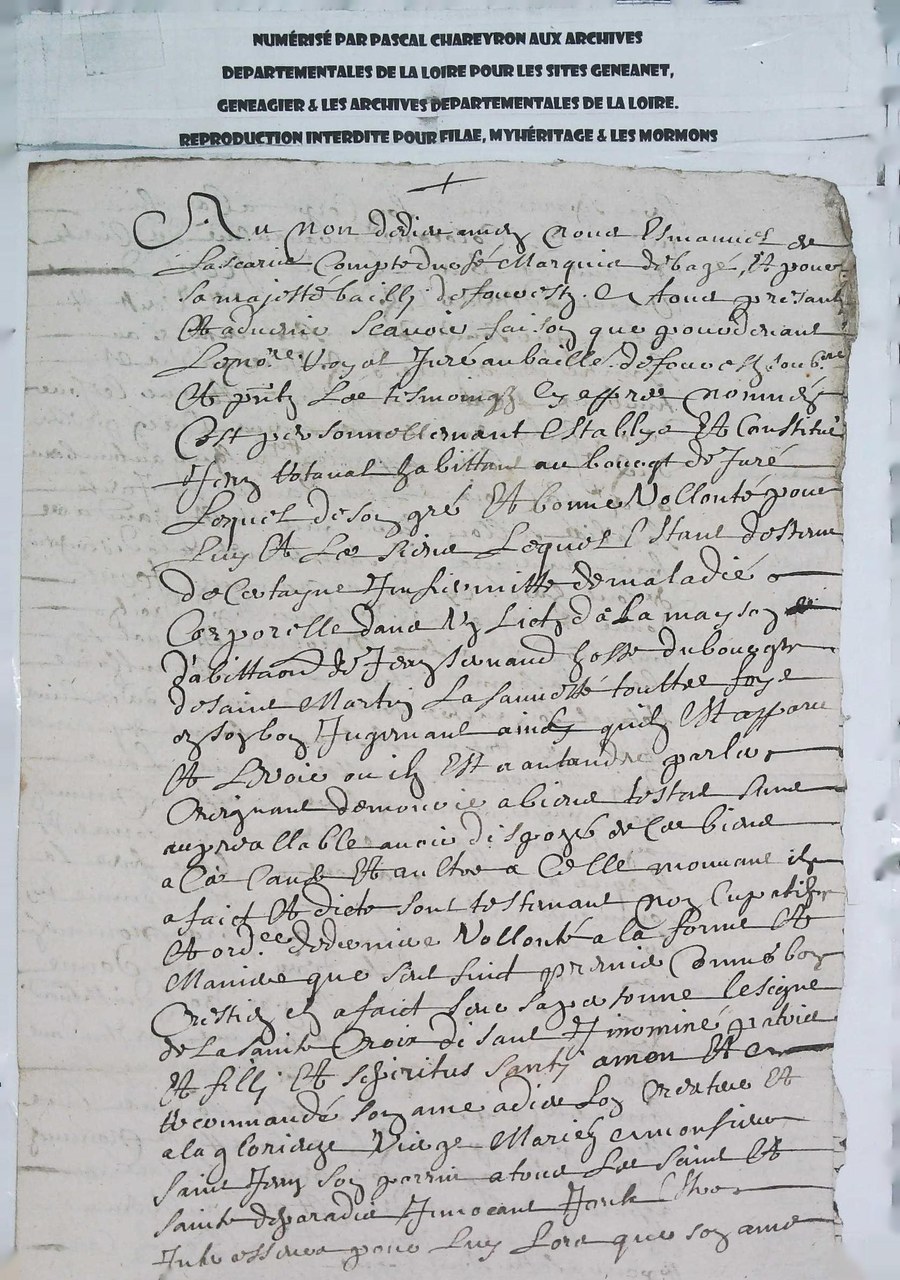 NUMÉRISÉ PAR PASCAL CHAREYRON AUX ARCHIVES
DEPARTEMENTALES DE LA LOIRE POUR LES SITES GENEANET,
GENEAGIER & LES ARCHIVES DEPARTEMENTALES DE LA LOIRE.
REPRODUCTION INTERDITE POUR FILAE, MYHÉRITAGE & LES MORMONS
Au non de dieu amen nous Esmanuel de
Lascaris Compte durfé Marquis de bagé, Et pour
sa majesté bailly de forestz. A tous presant
Et advenir scavoir faison que pardevant
Le no.re Royal Juré au bailla. de forestz soub.né
Et pntz Les tesmoingz cy appres nommés
C'est personnellemant Estably Et Constitué
Jean habittant au bourgt de Juré
Lequel de son gré Et bonne Vollonté pour
Luy Et Les siens Lequel Estant destenu
de Certayne Infirmitté de maladie
Corporelle dans Un Lict de La mayson
d'abittaon de Jean hoste du bourg
de saint Martin La sauvetté touttes foys
en son bon Jugemant ainsy quil Est apparu
Et Levoir ou il Est a antandre parler
Creignant de mourir abiens testat sans
aupreallable avoir disposé de Ces biens
a Ces Cause Et aultre a Celle mouvant il
a faict Et dicte sont testmant non Cupatif
Et ord.ce de derniere Vollonté a la forme Et
Maniere que sont suict premier Comme bon
Crestien il a faict sur sa personne Le signe
de La sainte Croix disant In nominé patris
Et filli Et spiritus Santi amen Et
recommandé son ame a dieu son Createur Et
a la glorieuze Vierge Marie a monsieur
saint Jean son parrin a tous Les saint Et
sainte de paradis
Intersseurs pour Luy Lors que son ame